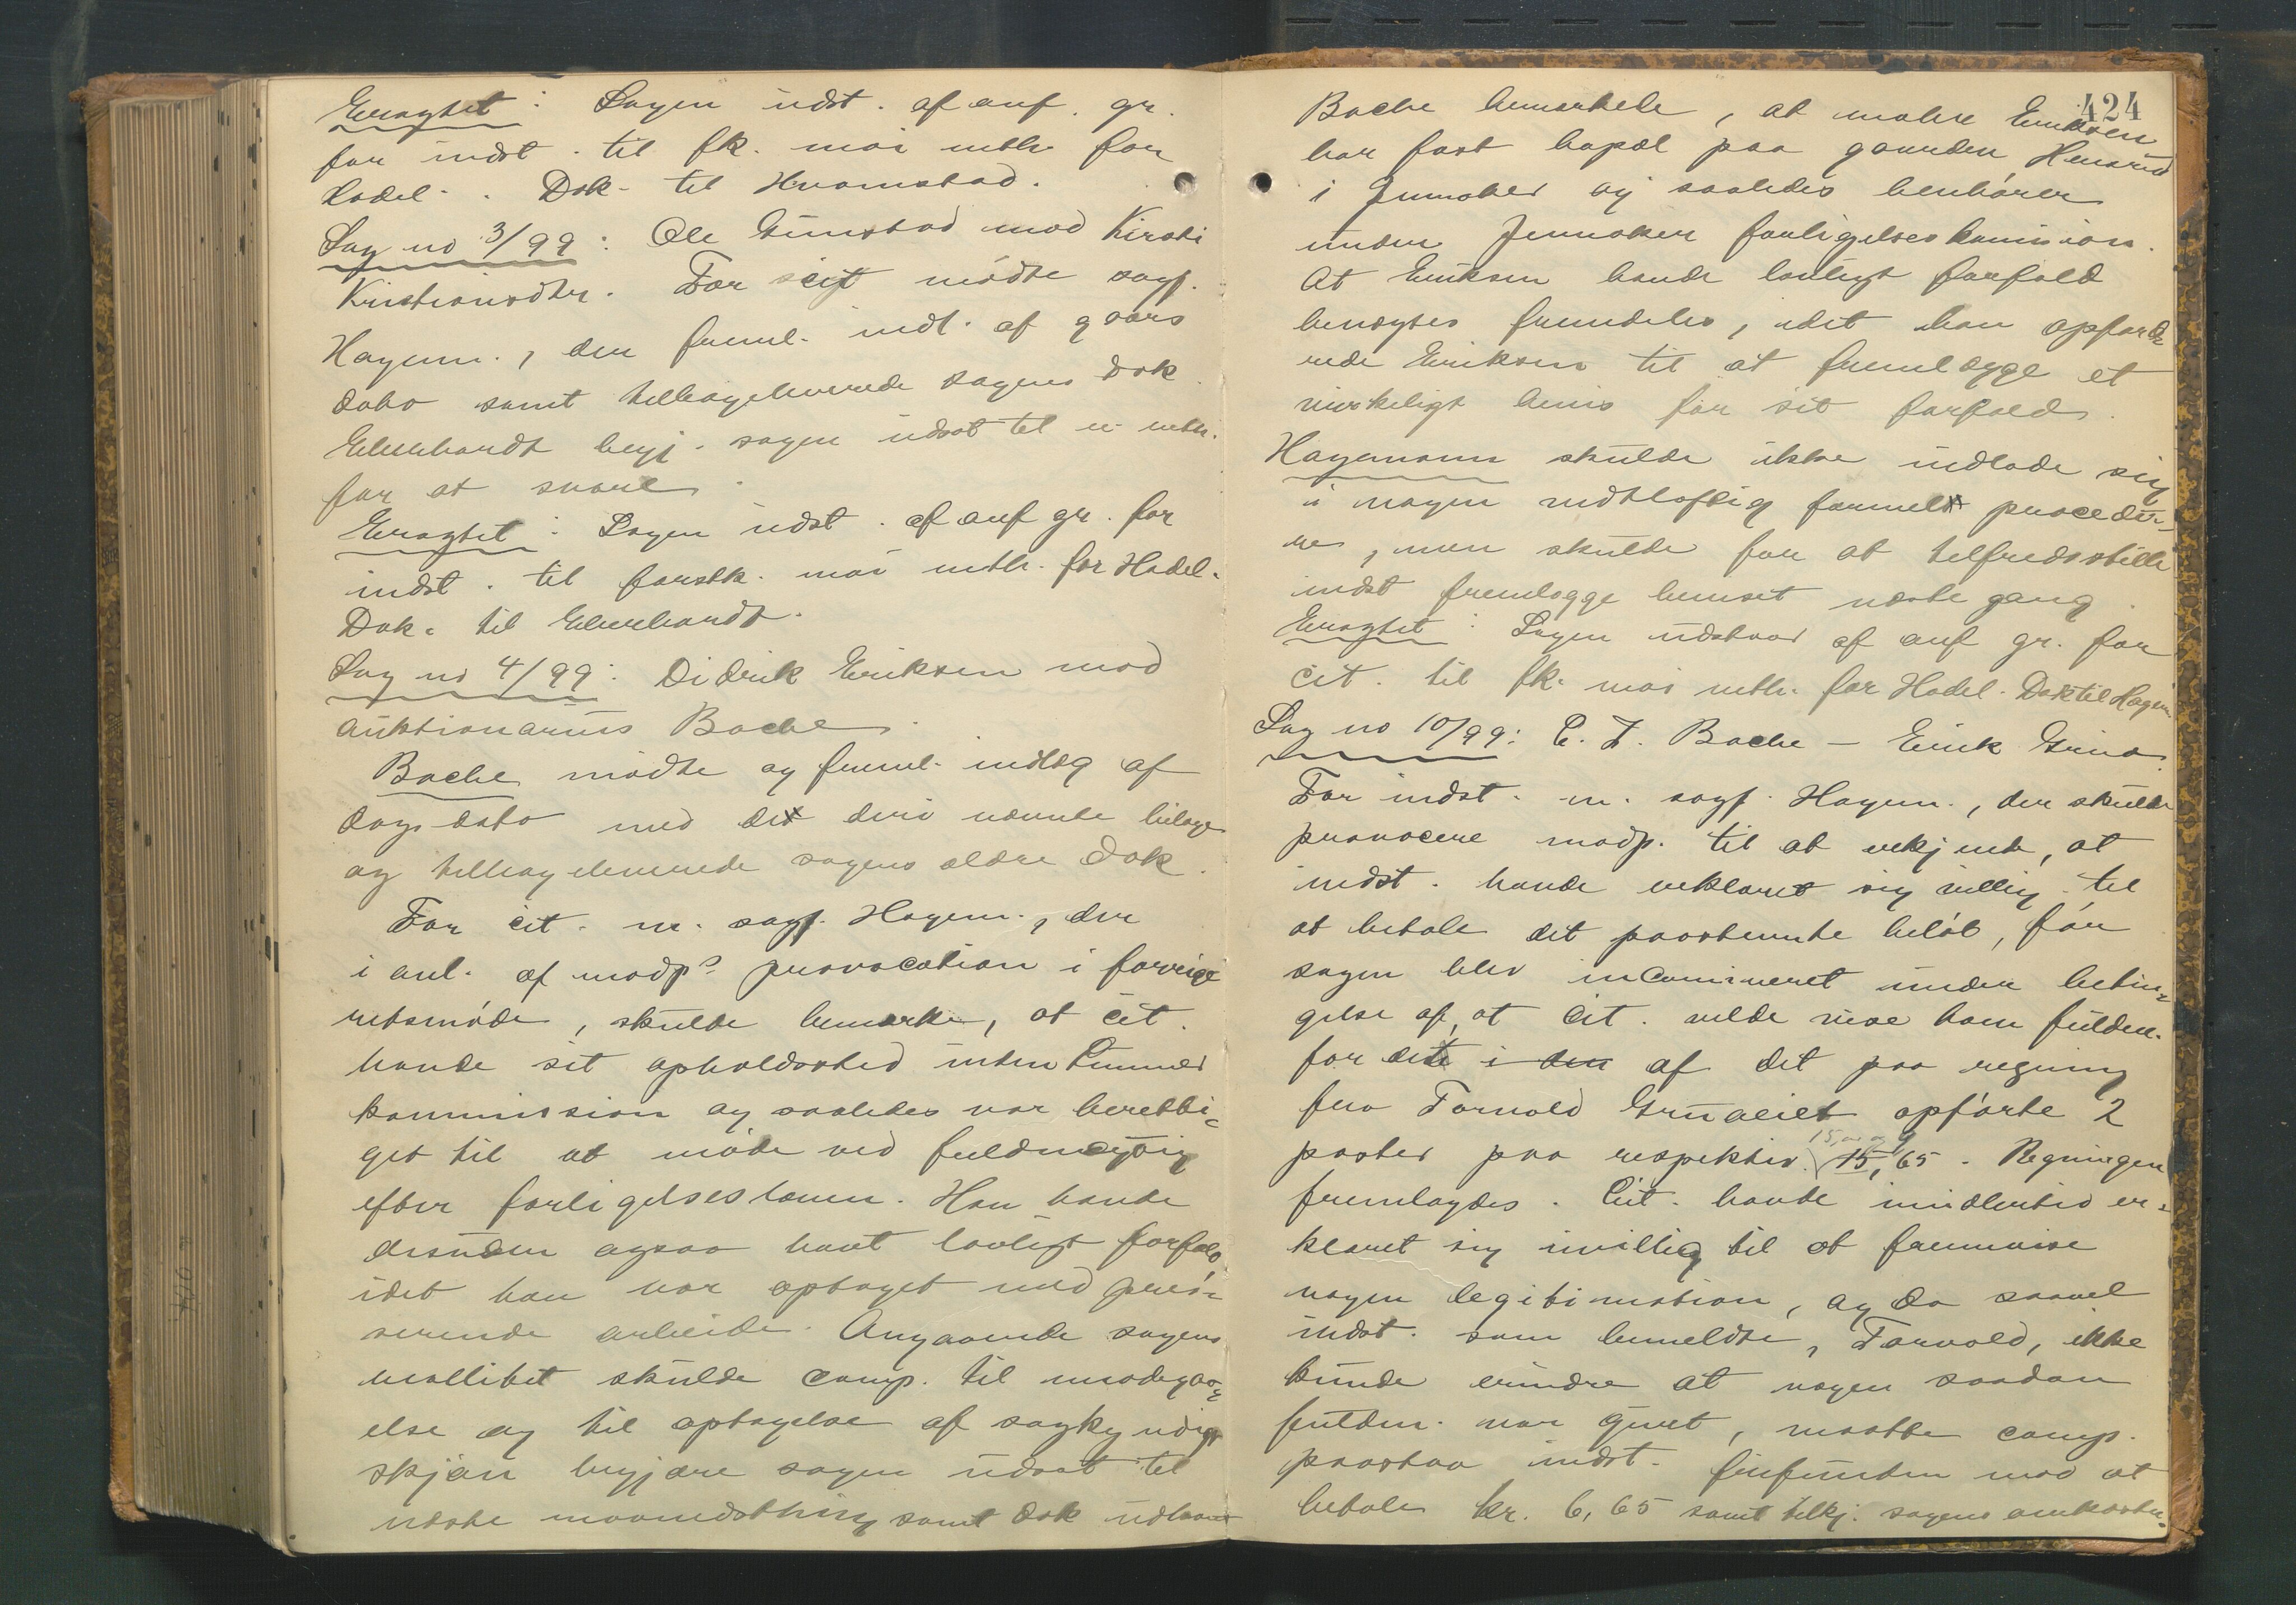 Eragtet: Sagen udst. af anf. gr.
for indst. til fk. mai mtb. for
Hadel.. Dok. til Hvamstad.
Sag no 3/99: Ole Grimstad mod Kirsti
Kristiansdtr. For cit mödte sagf.
Hagem., der freml. indl. af gaars
dato samt tilbageleverede sagens dok.
Elkenhardt begj. sagen udsat til n. mtb.
for at svare.
Eragtet: Sagen udst. af anf gr. for
indst. til forstk. mai mtb. for Hadel.
Dok. til Elkenhardt.
Sag no 4/99: Didrik Eriksen mod
auktionarius Bache.
Bache mödte og freml. indlæg af
dags dato med det deri nævnte bilage
og tilbageleverede sagens ældre dok.
For cit. m. sagf. Hagem., der
i anl. af modps provocation i forrige
retsmöde, skulde bemærke, at cit.
havde sit opholdssted inden
kommission og saaledes var beretti-
get til at möde ved fuldmægtig
efter forligelsesloven. Han havde
desuden ogsaa havt lovligt forfald,
idet han var optaget med pres-
serende arbeide. Angaaende sagens
realitet skulde comp. til imödegaa-
else og til optagelse af sagkyndigt
skjön begjære sagen udsat til
næste maanedsthing samt dok udlaant
424
Bache bemærkede, at maler Eriksen
har fast bopæl paa gaarden Hensrud
i Jevnaker og saaledes henhörer
under Jevnaker forligelseskomission.
At Eriksen havde lovligt forfald
benægtes fremdeles, idet han opford-
rede Eriksen til at fremlægge et
virkeligt bevis for sit forfald.
Hagemann skulde ikke indlade sig
i nogen vidtløftig formel procedu-
re, men skulde for at tilfredsstille
indst fremlægge beviset næste gang.
Eragtet: Sagen udstaar af anf gr. for
cit. til fk. mai mtb. for Hadel. Dok til Hagem
Sag no 10/99: C. F. Bache – Erik Grina.
For indst. m. sagf. Hagem., der skulde
provocere modp. til at erkjende, at
indst. havde erklaret sig villig til
at betale det paastevnte belöb, för
sagen blev incamineret under betin-
gelse af, at cit. vilde vise ham fuldm.
for det i den af det paa regning
fra Torvald Gruaeiet opförte 2
poster paa respektiv. 15, 65. Regningen
fremlagdes. Cit. havde imidlertid er-
klæret sig uvillig til at fremvise
nogen legitimation, og da saavel
indst. som bemeldte, Torvald, ikke
kunde erindre at nogen saadan
fuldm. var givet, maatte comp.
paastaa indst. frifunden mod at
betale kr. 6,65 samt tilkj. sagens omkostn-